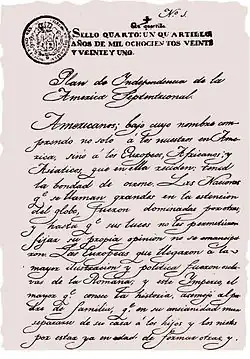 No. 1.
Un quartillo
SELLO QUARTO: UN QUARTILLO
AÑOS DE MIL OCHOCIENTOS VEINTE
Y VEINTE Y UNO.
Plan de Independencia de la
America Septentrional.
Americanos; bajo cuyo nombre com-
prendo no solo á los nacidos en Ame-
rica, sino á los Européos, Africanos, y
Asiaticos, que en ella residen: tened
la bondad de oirme. Las Naciones
qe. se llaman grandes en la estencion
del globo, fueron dominadas por otras;
y hasta qe. sus luces no les permitieron
fijar su propia opinion no se emancipa-
ron. Las Européas que llegaron á la
mayor ilustracion y politica fueron escla-
vas de la Romana; y este Imperio, el
mayor qe. conoce la historia, asemejó al pa-
dre de familias, qe. en su ancianidad mira
separarse de su casa á los hijos y los nietos
por estar ya en edad de formar otras, y